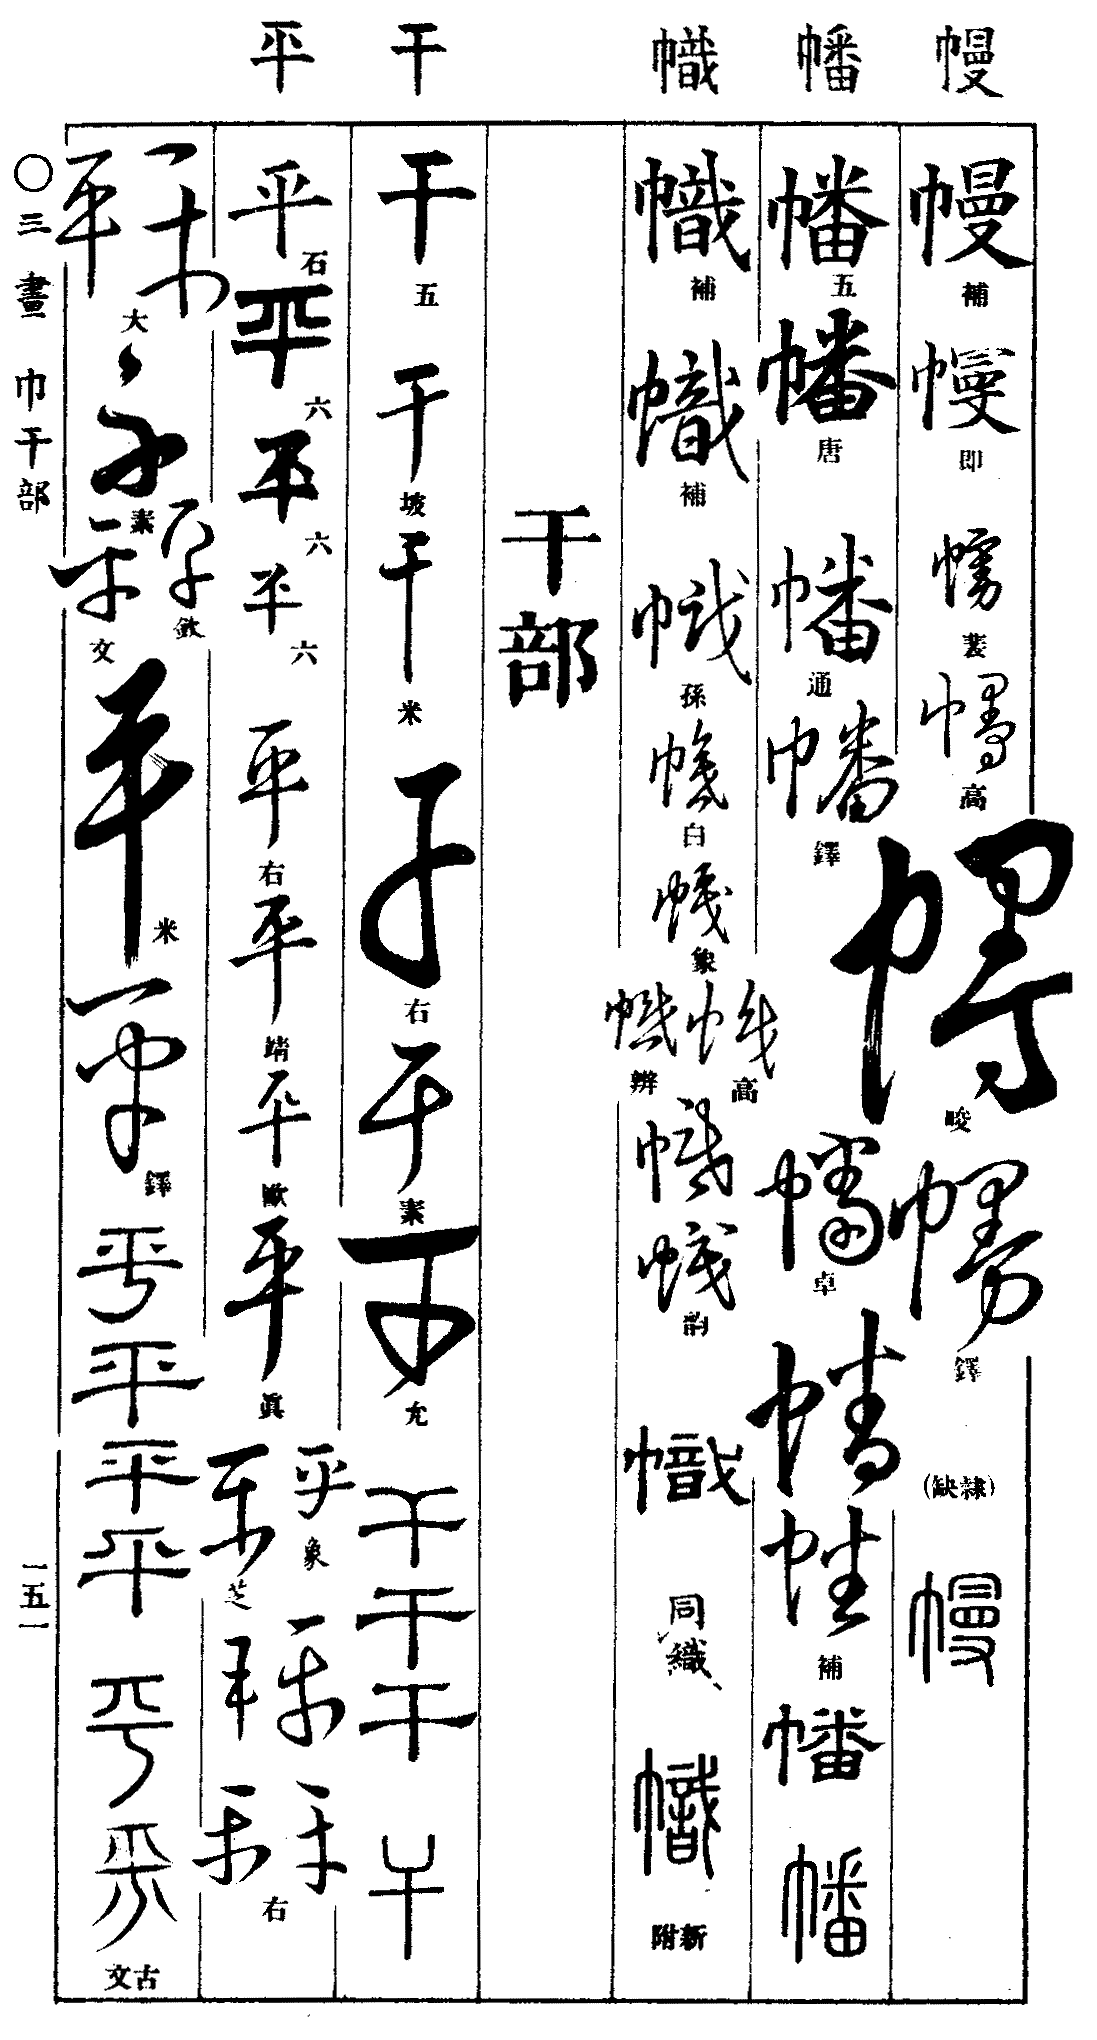 幔 幡 幟 干 平
幔 補 幔 即 幔 裴 幔 高 幔 峻 幔 鐸 (隸缺) 幔
幡 五 幡 唐 幡 通 幡 鐸 幡 卓 幡 幡 補 幡 幡
幟 補 幟 補 幟 孫 幟 白 幟 象 幟 高 幟 辨 幟 幟 韵 幟 同織 幟 新附
干部
干 五 干 坡 干 米 干 右 干 素 干 允 干 干 干 干
平 石 平 六 平 六 平 六 平 右 平 靖 平 歐 平 眞 平 象 平 芝 平 平 平 平 右
平 平 大 平 素 平 歛 平 文 平 米 平 鐸 平 平 平 平 平 平 古文
○三畫 巾干部
一五一